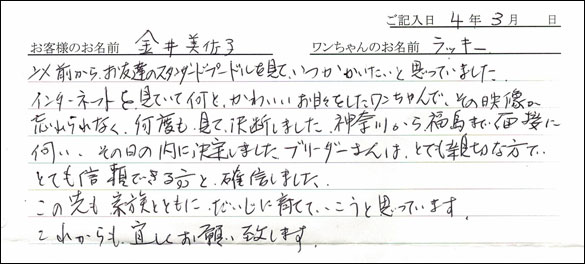 ご記入日 4年 3月 日
お客様のお名前 金井美佐子 ワンちゃんのお名前 ラッキー
以前から、お友達のスタンダードプードルを見て、いつかかいたいと思っていました。
インターネットを見ていて何と、かわいいお目々をしたワンちゃんで、その映像が
忘れられなく、何度も見て、決断しました。神奈川から福島まで面接に
伺い、その日の内に決定しました。ブリーダーさんは、とても親切な方で、
とても信頼できる方と、確信しました。
この先も家族とともに、だいじに育てて、いこうと思っています。
これからも、宜しくお願い致します。